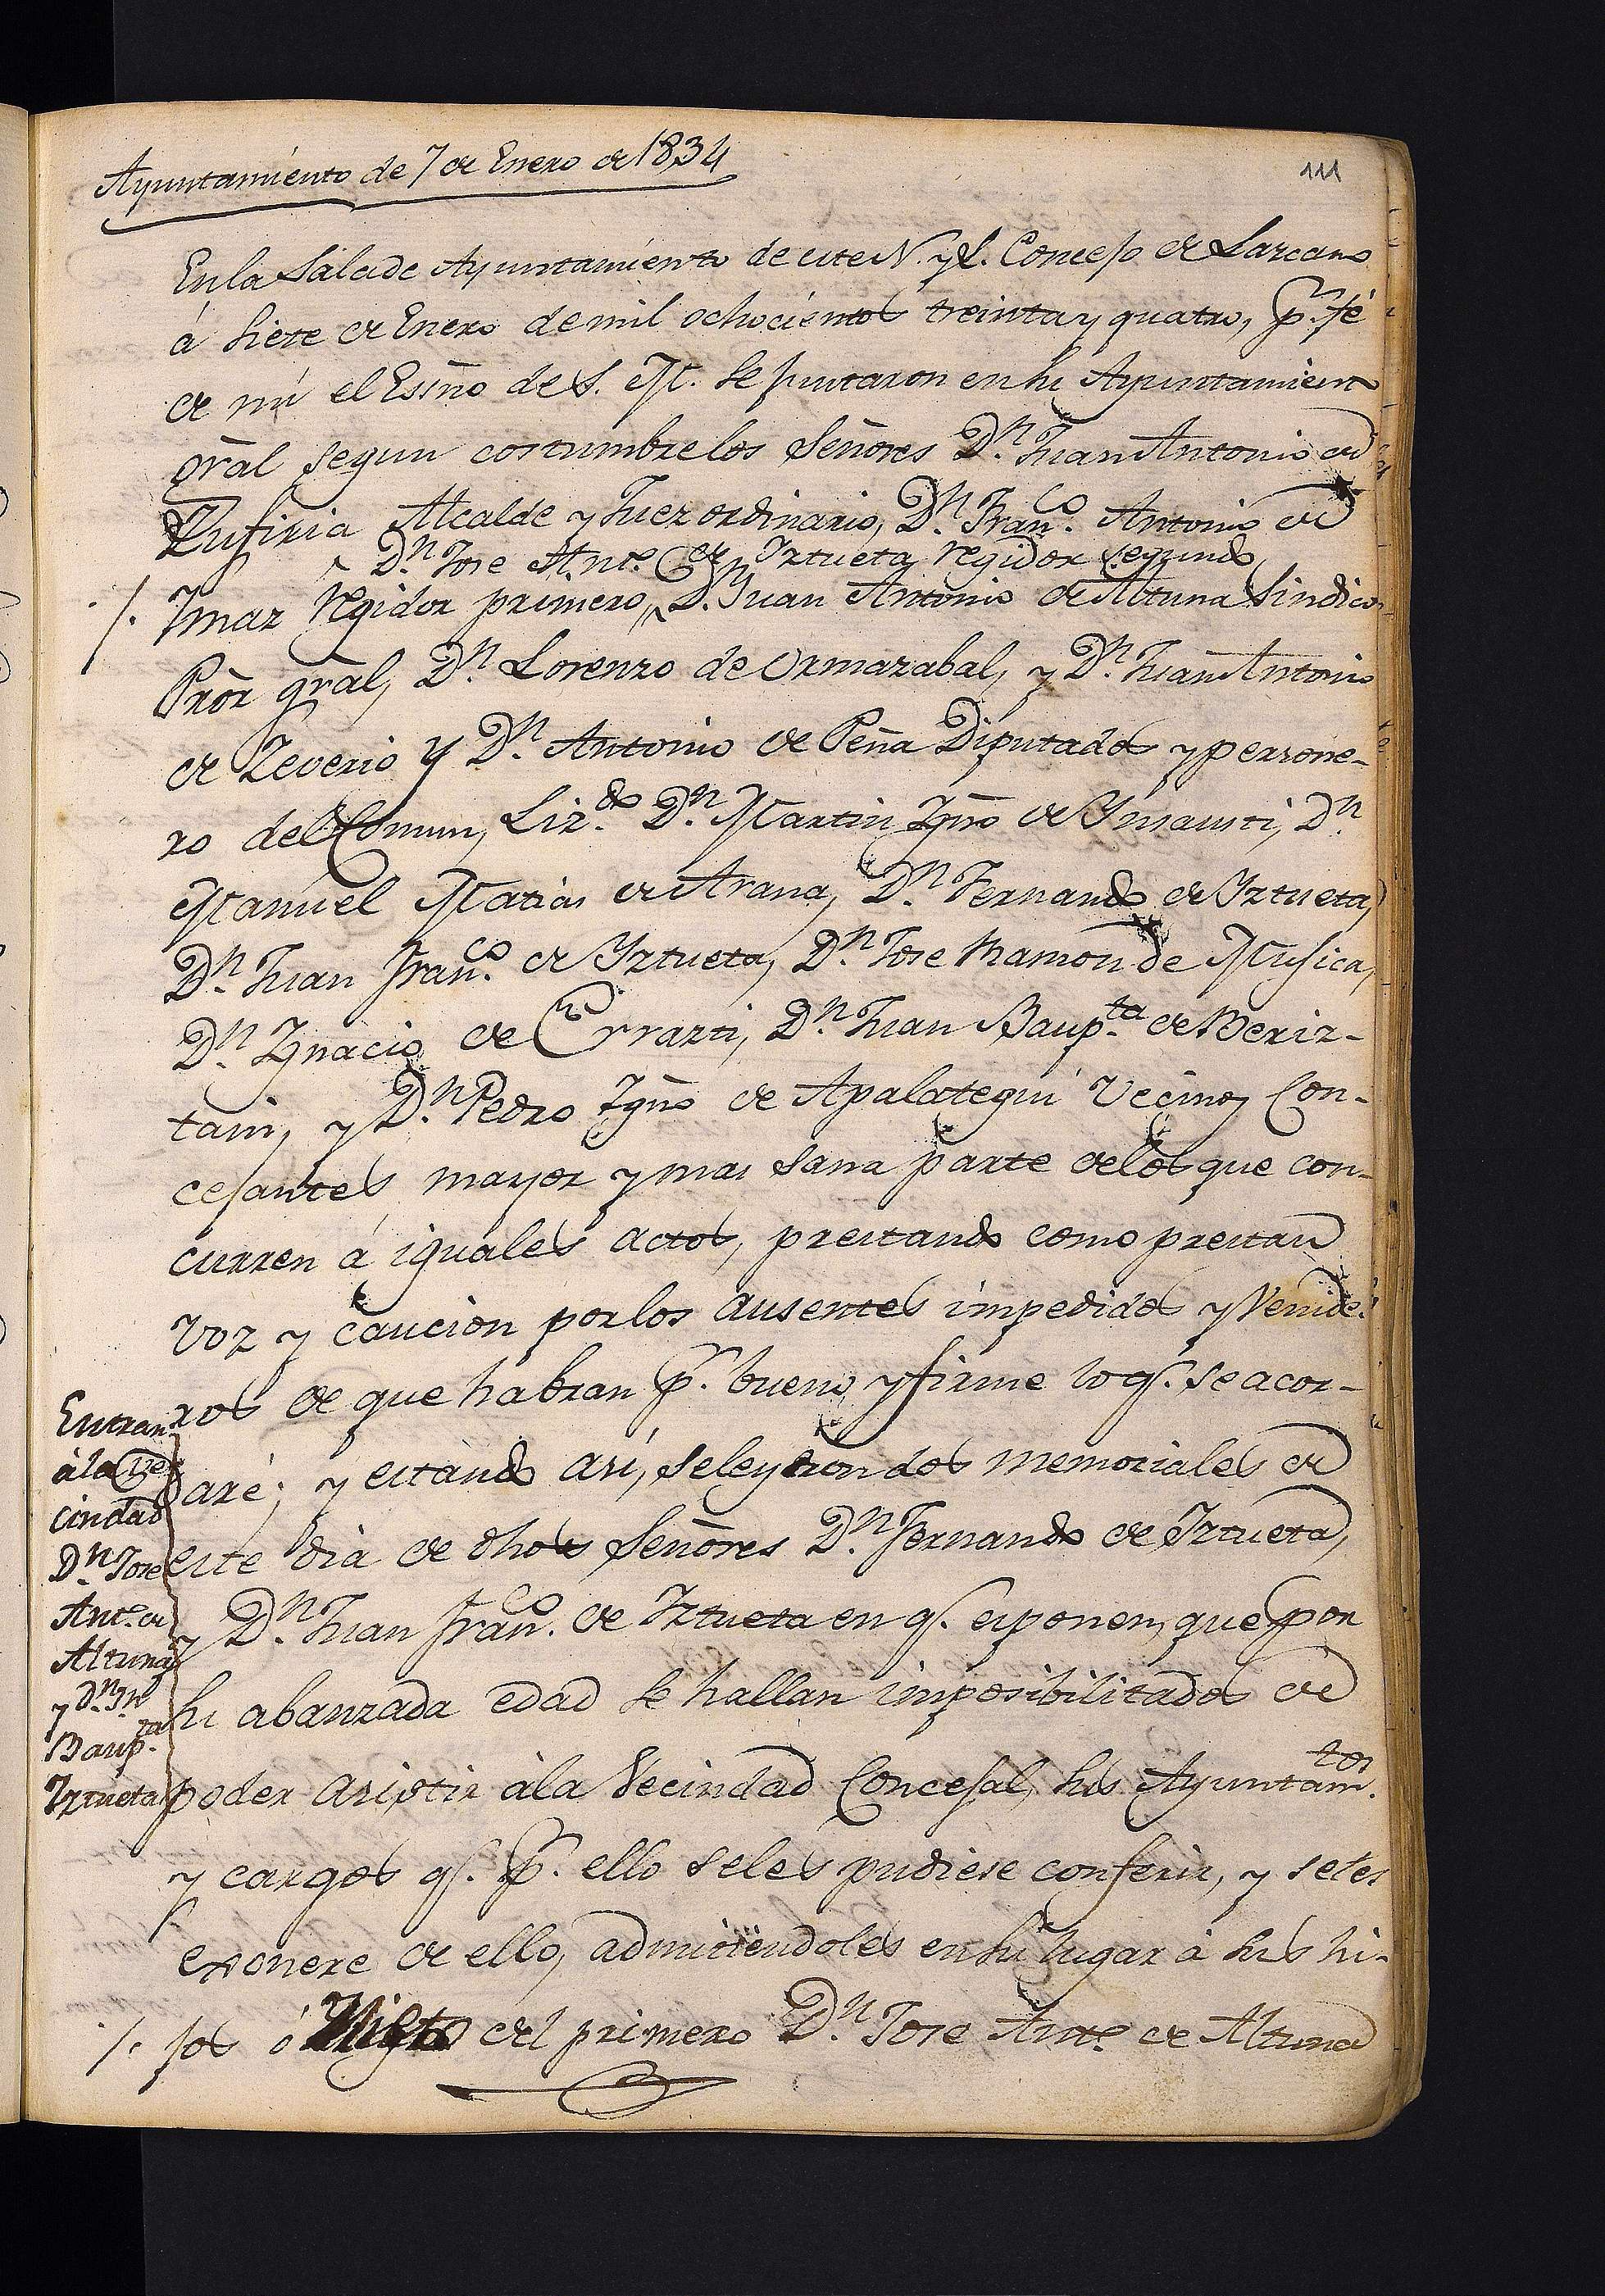 Ayuntamiento de 7 de Enero de 1834
111
En la Sala de Ayuntamiento de este N. y L. Concejo de Lazcano
á Siete de Enero de mil ochocientos treinta y quatro, p.r fé
de mi el Esño de S. M. se juntaron en su Ayuntamiento
gral segun costumbre los Señores D.n Juan Antonio de
Zufiria Alcalde y Juez ordinario, D.n Fran.co Antonio de
D.n Jose Ant.o de Iztueta Regidor segundo
/. Imaz Regidor primero, D.n Juan Antonio de Altuna Sindico
Prõr gral, D.n Lorenzo de Ormazabal, y D.n Juan Antonio
de Zeverio y D.n Antonio de Peña Diputados y perzone-
ro del Comun, Liz.do D.n Martin Ygño de Ynsausti, D.n
Manuel Matias de Arana, D.n Fernando de Yztueta,
D.n Juan Fran.co de Yztueta, D.n Jose Ramon de Mugica,
D.n Ygnacio de Errazti, D.n Juan Baup.ta de Beriz-
tain, y D.n Pedro Igño de Apalategui Vecinos Con-
cejantes mayor y mas sana parte de los que con-
curren á iguales actos, prestando como prestan
voz y caucion por los ausentes impedidos y Venide-
ros de que habran p.r bueno y firme lo q.e se acor-
dare; y estando asi, se leyeron dos memoriales de
este dia de dhos Señores D.n Fernando de Iztueta,
y D.n Juan Fran.co de Iztueta en q.e exponen, que por
su abanzada edad se hallan imposibilitados de
poder asistir à la Vecindad Concejal, sus Ayuntam.tos
y cargos q.e p.r ello se les pudiese conferir, y se les
exonere de ello, admitiendoles en su lugar à sus hi-
/. jos ó Nieto del primero D.n Jose Ant.o de Altuna
Entran
à la Ve
cindad
D.n Jose
Ant.o de
Altuna
y D.n J.n
Baup.ta
Iztueta